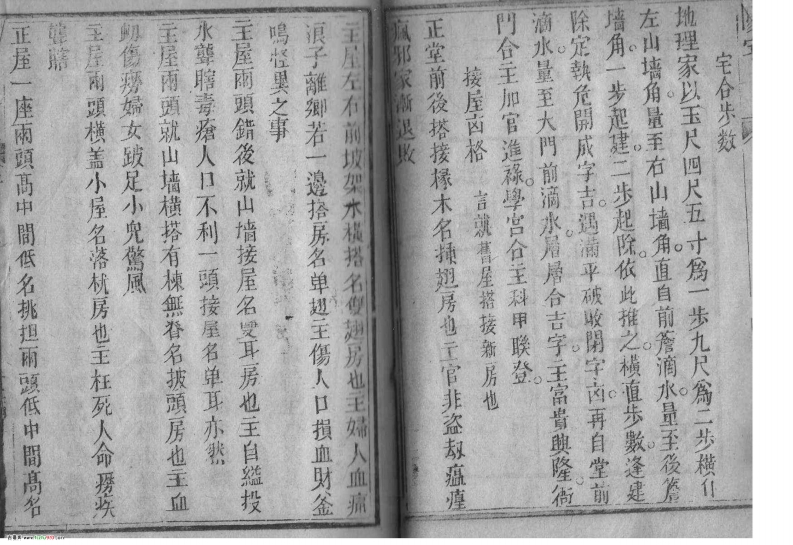 宅合步數
地理家以玉尺四尺五寸為一步九尺為二步橫自
左山墻角量至右山墻角直自前簷滴水量至後簷
墻角一步起建二步起除依此推之橫直步數逢建
除定執危開成字吉遇滿平破收閉字凶再自堂前
滴水量至大門前滴水層層合吉字主富貴興隆衙
門合主加官進祿學宮合主科甲聯登
接屋凶格 言就舊屋搭接新房也
正堂前後搭接椽木名插翅房也主官非盜刼瘟瘴
瘋邪家漸退敗
主屋左右前坡架水橫搭名雙翅房也主婦人血癆
浪子離鄉若一邊搭房名单翅主傷人口損血財釜
鳴怪異之事
主屋兩頭錯後就山墻接屋名雙耳房也主自縊投
水聾瞎毒瘡人口不利一頭接屋名单耳亦然
主屋兩頭就山墻橫搭有棟無脊名披頭房也主血
傷癆婦女跛足小兒驚風
主屋兩頭橫盖小屋名落枕房也主枉死人命癆疾
聾瞎
正屋一座兩頭髙中間低名挑担兩頭低中間髙名